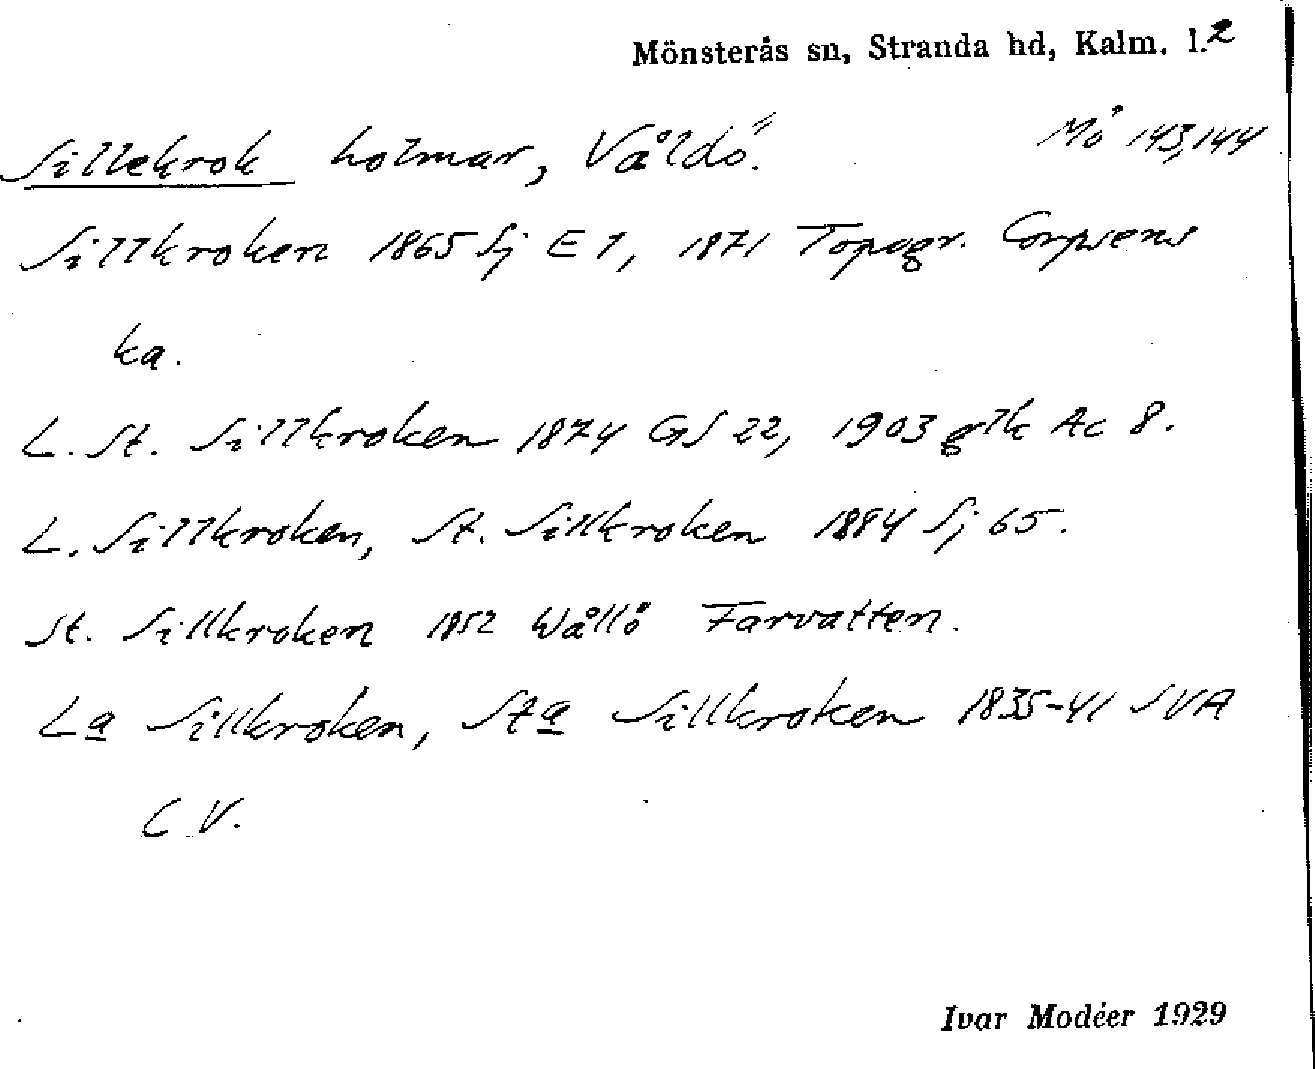 Mönsterås sn, Stranda hd, Kalm. l. 2
Sillekrok holmar, Våldö. Mö 143,144
Sillkroken 1865 Sj E 1, 1871 Topogr. Corpsens
ka.
L. St. Sillkroken 1874 GS 22, 1903 glk Ac 8.
L. Sillkroken, St. Sillkroken 1884 Sj 65.
St. Sillkroken 1852 Wållö Farvatten.
La Sillkroken, Sta Sillkroken 1835-41 SVA
C.V.
Ivar Modéer 1929